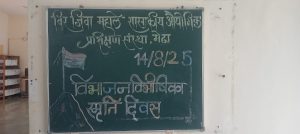 विर जिवा महाले शासकीय औद्योगिक
प्रशिक्षण संस्था, मेढा
14/8/25
विभाजन विभीषिका
स्मृति दिवस